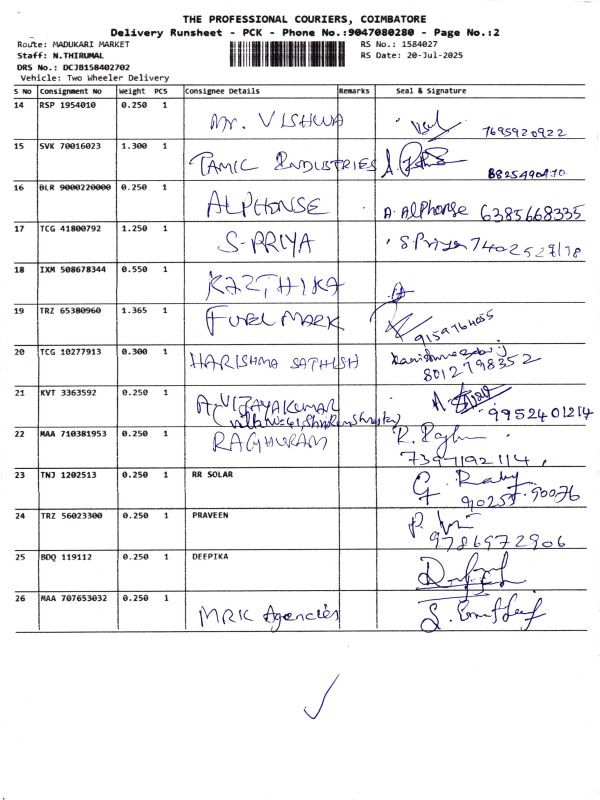 THE PROFESSIONAL COURIERS, COIMBATORE
Delivery Runsheet - PCK - Phone No.:9047080280 - Page No.:2
Route: MADUKARI MARKET RS No.: 1584027
Staff: N.THIRUMAL RS Date: 20-Jul-2025
DRS No.: DCJB158402702
Vehicle: Two Wheeler Delivery
S No Consignment No Weight PCS Consignee Details Remarks Seal & Signature
14 RSP 1954010 0.250 1 Mr. VISHWA 7695920922
15 SVK 70016023 1.300 1 TAMIL INDUSTRIES
16 BLR 9000220000 0.250 1 ALPHONSE A. Alphonse 6385668335
17 TCG 41800792 1.250 1 S-PRIYA S Priya
18 IXM 508678344 0.550 1 KARTHIKA
19 TRZ 65380960 1.365 1 FUEL MARK
20 TCG 10277913 0.300 1 HARISHMA SATHISH 8012798352
21 KVT 3363592 0.250 1 A. VIJAYAKUMAR 9952401214
22 MAA 710381953 0.250 1 RAGHURAM
23 TNJ 1202513 0.250 1 RR SOLAR
24 TRZ 56023300 0.250 1 PRAVEEN 9786972906
25 BDQ 119112 0.250 1 DEEPIKA
26 MAA 707653032 0.250 1 MRK Agencies